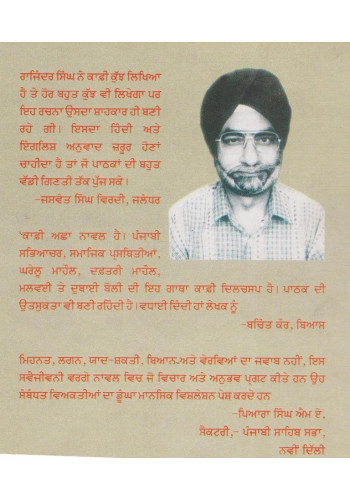 ਰਾਜਿੰਦਰ ਸਿੰਘ ਨੇ ਕਾਫ਼ੀ ਕੁੱਝ ਲਿਖਿਆ
ਹੈ ਤੇ ਹੋਰ ਬਹੁਤ ਕੁੱਝ ਵੀ ਲਿਖੇਗਾ ਪਰ
ਇਹ ਰਚਨਾ ਉਸਦਾ ਸ਼ਾਹਕਾਰ ਹੀ ਬਣੀ
ਰਹੇ ਗੀ। ਇਸਦਾ ਹਿੰਦੀ ਅਤੇ
ਇੰਗਲਿਸ਼ ਅਨੁਵਾਦ ਜ਼ਰੂਰ ਹੋਣਾਂ
ਚਾਹੀਦਾ ਹੈ ਤਾਂ ਜੋ ਪਾਠਕਾਂ ਦੀ ਬਹੁਤ
ਵੱਡੀ ਗਿਣਤੀ ਤੱਕ ਪੁੱਜ ਸਕੇ।
-ਜਸਵੰਤ ਸਿੰਘ ਵਿਰਦੀ, ਜਲੰਧਰ
'ਕਾਫ਼ੀ ਅਛਾ ਨਾਵਲ ਹੈ। ਪੰਜਾਬੀ
ਸਭਿਆਚਰ, ਸਮਾਜਿਕ ਪ੍ਰਸਥਿਤੀਆਂ,
ਘਰੇਲੂ ਮਾਹੌਲ, ਦਫ਼ਤਰੀ ਮਾਹੌਲ,
ਮਲਵਈ ਤੇ ਦੁਬਾਈ ਬੋਲੀ ਦੀ ਇਹ ਗਾਥਾ ਕਾਫ਼ੀ ਦਿਲਚਸਪ ਹੈ। ਪਾਠਕ ਦੀ
ਉਤਸੁਕਤਾ ਵੀ ਬਣੀ ਰਹਿੰਦੀ ਹੈ। ਵਧਾਈ ਦਿੰਦੀ ਹਾਂ ਲੇਖਕ ਨੂੰ
-ਬਚਿੰਤ ਕੌਰ, ਬਿਆਸ
ਮਿਹਨਤ, ਲਗਨ, ਯਾਦ-ਸ਼ਕਤੀ, ਬਿਆਨ-ਅਤੇ ਵੇਰਵਿਆਂ ਦਾ ਜਵਾਬ ਨਹੀਂ, ਇਸ
ਸਵੈਜੀਵਨੀ ਵਰਗੇ ਨਾਵਲ ਵਿਚ ਜੋ ਵਿਚਾਰ ਅਤੇ ਅਨੁਭਵ ਪ੍ਰਗਟ ਕੀਤੇ ਹਨ ਉਹ
ਸੰਬੰਧਤ ਵਿਅਕਤੀਆਂ ਦਾ ਡੂੰਘਾ ਮਾਨਸਿਕ ਵਿਸ਼ਲੇਸ਼ਨ ਪੇਸ਼ ਕਰਦੇ ਹਨ
-ਪਿਆਰਾ ਸਿੰਘ ਐਮ ਏ,
ਸੈਕਟਰੀ,- ਪੰਜਾਬੀ ਸਾਹਿਬ ਸਭਾ,
ਨਵੀਂ ਦਿੱਲੀ